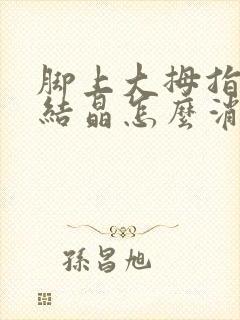 脚上大拇指
結晶怎麼消
孫昌旭